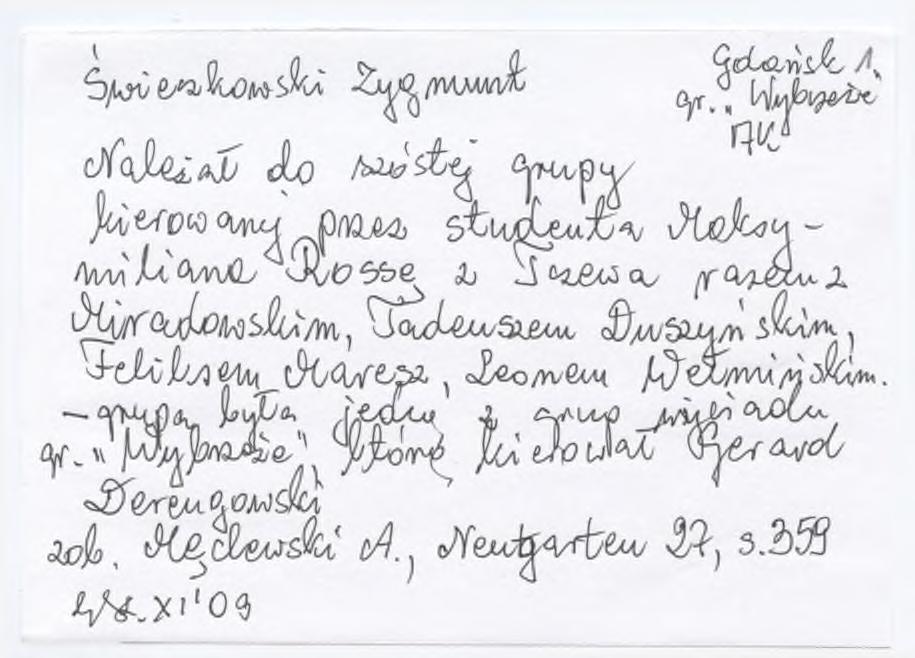 Świeszkowski Zygmunt
Gdańsk 1.
gr. „Wybrzeże"
AK
Należał do szóstej grupy
kierowanej przez studenta Maksy-
miliana Rossę z Tczewa razem z
Miradowskim, Tadeuszem Duszyńskim,
Feliksem Maresz, Leonem Wełmińskim.
- grupa była jedną z grup wywiadu
gr. „Wybrzeże" którą kierował Gerard
Derengowski
zob. Męclewski A., Neugarten 27, s. 359
XI'09